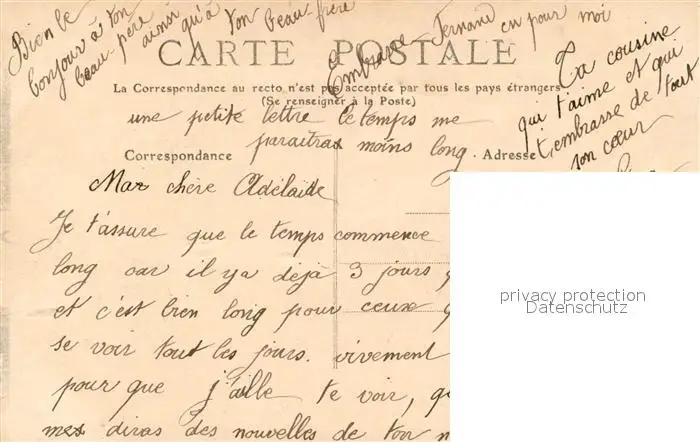 Bien le
bonjour à ton
beau père
ainsi qu'à
ton beau frère
Embrasse Fernand en pour moi
CARTE POSTALE
La Correspondance au recto n'est pas acceptée par tous les pays étrangers
(Se renseigner à la Poste)
Ta cousine
qui t'aime et qui
t'embrasse de tout
son cœur
une petite lettre le temps me
paraitras moins long.
Correspondance
Adresse
Mar chère Adélaide
Je t'assure que le temps commence
long car il ya déjà 3 jours
et c'est bien long pour ceux
se voir tout les jours. vivement
pour que j'aille te voir,
mes diras des nouvelles de ton
privacy protection
Datenschutz